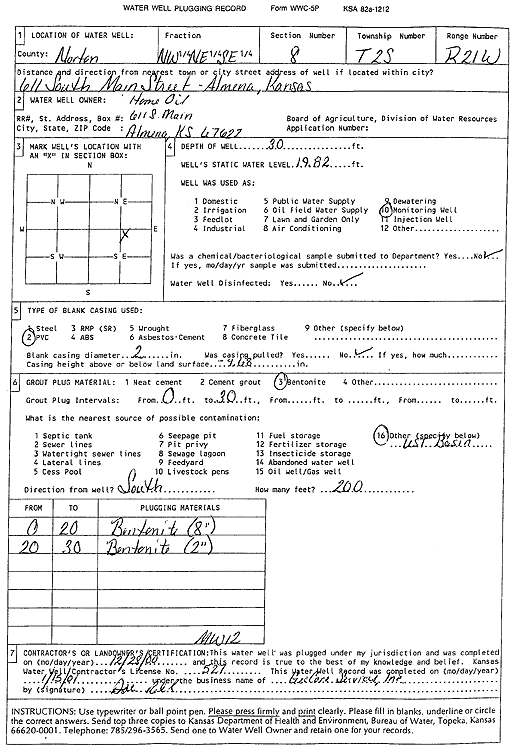 WATER WELL PLUGGING RECORD Form WWC-5P KSA 82a-1212
1 LOCATION OF WATER WELL: Fraction Section Number Township Number Range Number
County: Norton NW¼ NE¼ SE¼ 8 T2S R21W
Distance and direction from nearest town or city street address of well if located within city?
611 South Main Street - Almena, Kansas
2 WATER WELL OWNER: Home Oil
RR#, St. Address, Box #: 611 S. Main Board of Agriculture, Division of Water Resources
City, State, ZIP Code : Almena, KS 67622 Application Number:
3 MARK WELL'S LOCATION WITH AN "X" IN SECTION BOX:
N
N W N E
W E
X
S W S E
S
4 DEPTH OF WELL...30...ft.
WELL'S STATIC WATER LEVEL.19.82...ft.
WELL WAS USED AS:
1 Domestic 5 Public Water Supply 9 Dewatering
2 Irrigation 6 Oil Field Water Supply 10 Monitoring Well
3 Feedlot 7 Lawn and Garden Only 11 Injection Well
4 Industrial 8 Air Conditioning 12 Other...
Was a chemical/bacteriological sample submitted to Department? Yes....No.✓
If yes, mo/day/yr sample was submitted...
Water Well Disinfected: Yes...... No.✓
5 TYPE OF BLANK CASING USED:
1 Steel 3 RMP (SR) 5 Wrought 7 Fiberglass 9 Other (specify below)
2 PVC 4 ABS 6 Asbestos-Cement 8 Concrete Tile
Blank casing diameter..2...in. Was casing pulled? Yes...... No.✓ If yes, how much...
Casing height above or below land surface...in.
6 GROUT PLUG MATERIAL: 1 Neat cement 2 Cement grout 3 Bentonite 4 Other...
Grout Plug Intervals: From.0.ft. to.30.ft., From......ft. to ......ft., From......ft. to......ft.
What is the nearest source of possible contamination:
1 Septic tank 6 Seepage pit 11 Fuel storage 16 Other (specify below)
2 Sewer lines 7 Pit privy 12 Fertilizer storage UST Basin
3 Watertight sewer lines 8 Sewage lagoon 13 Insecticide storage
4 Lateral lines 9 Feedyard 14 Abandoned water well
5 Cess Pool 10 Livestock pens 15 Oil well/Gas well
Direction from well? South How many feet? 200
FROM TO PLUGGING MATERIALS
0 20 Bentonite (8")
20 30 Bentonite (2")
MW12
7 CONTRACTOR'S OR LANDOWNER'S CERTIFICATION: This water well was plugged under my jurisdiction and was completed
on (mo/day/year)...12/28/00... and this record is true to the best of my knowledge and belief. Kansas
Water Well Contractor's License No. ...527... This Water Well Record was completed on (mo/day/year)
1/15/01 under the business name of Services, Inc
by (signature)
INSTRUCTIONS: Use typewriter or ball point pen. Please press firmly and print clearly. Please fill in blanks, underline or circle
the correct answers. Send top three copies to Kansas Department of Health and Environment, Bureau of Water, Topeka, Kansas
66620-0001. Telephone: 785/296-3565. Send one to Water Well Owner and retain one for your records.